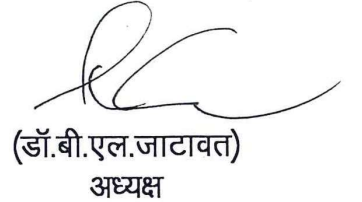 (डॉ.बी.एल.जाटावत)
अध्यक्ष